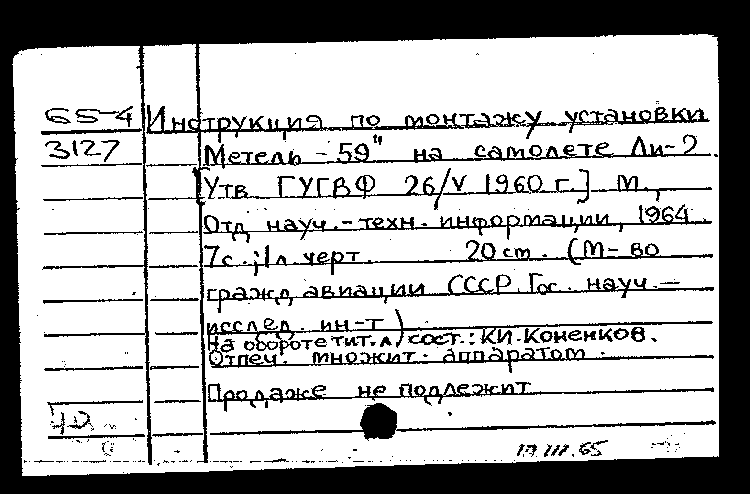 65-4 Инструкция по монтажу установки
3127 Метель-59" на самолете Ли-2.
[Утв ГУГВФ 26/V 1960 г.] М.,
Отд науч.-техн. информации, 1964.
7с.; 1л. черт. 20 cm. (М-во
гражд авиации СССР. Гос. науч.-
исслед. ин-т)
На обороте тит. л, сост.: К.И. Коненков.
Отпеч. множит. аппаратом.
Продаже не подлежит
III.65